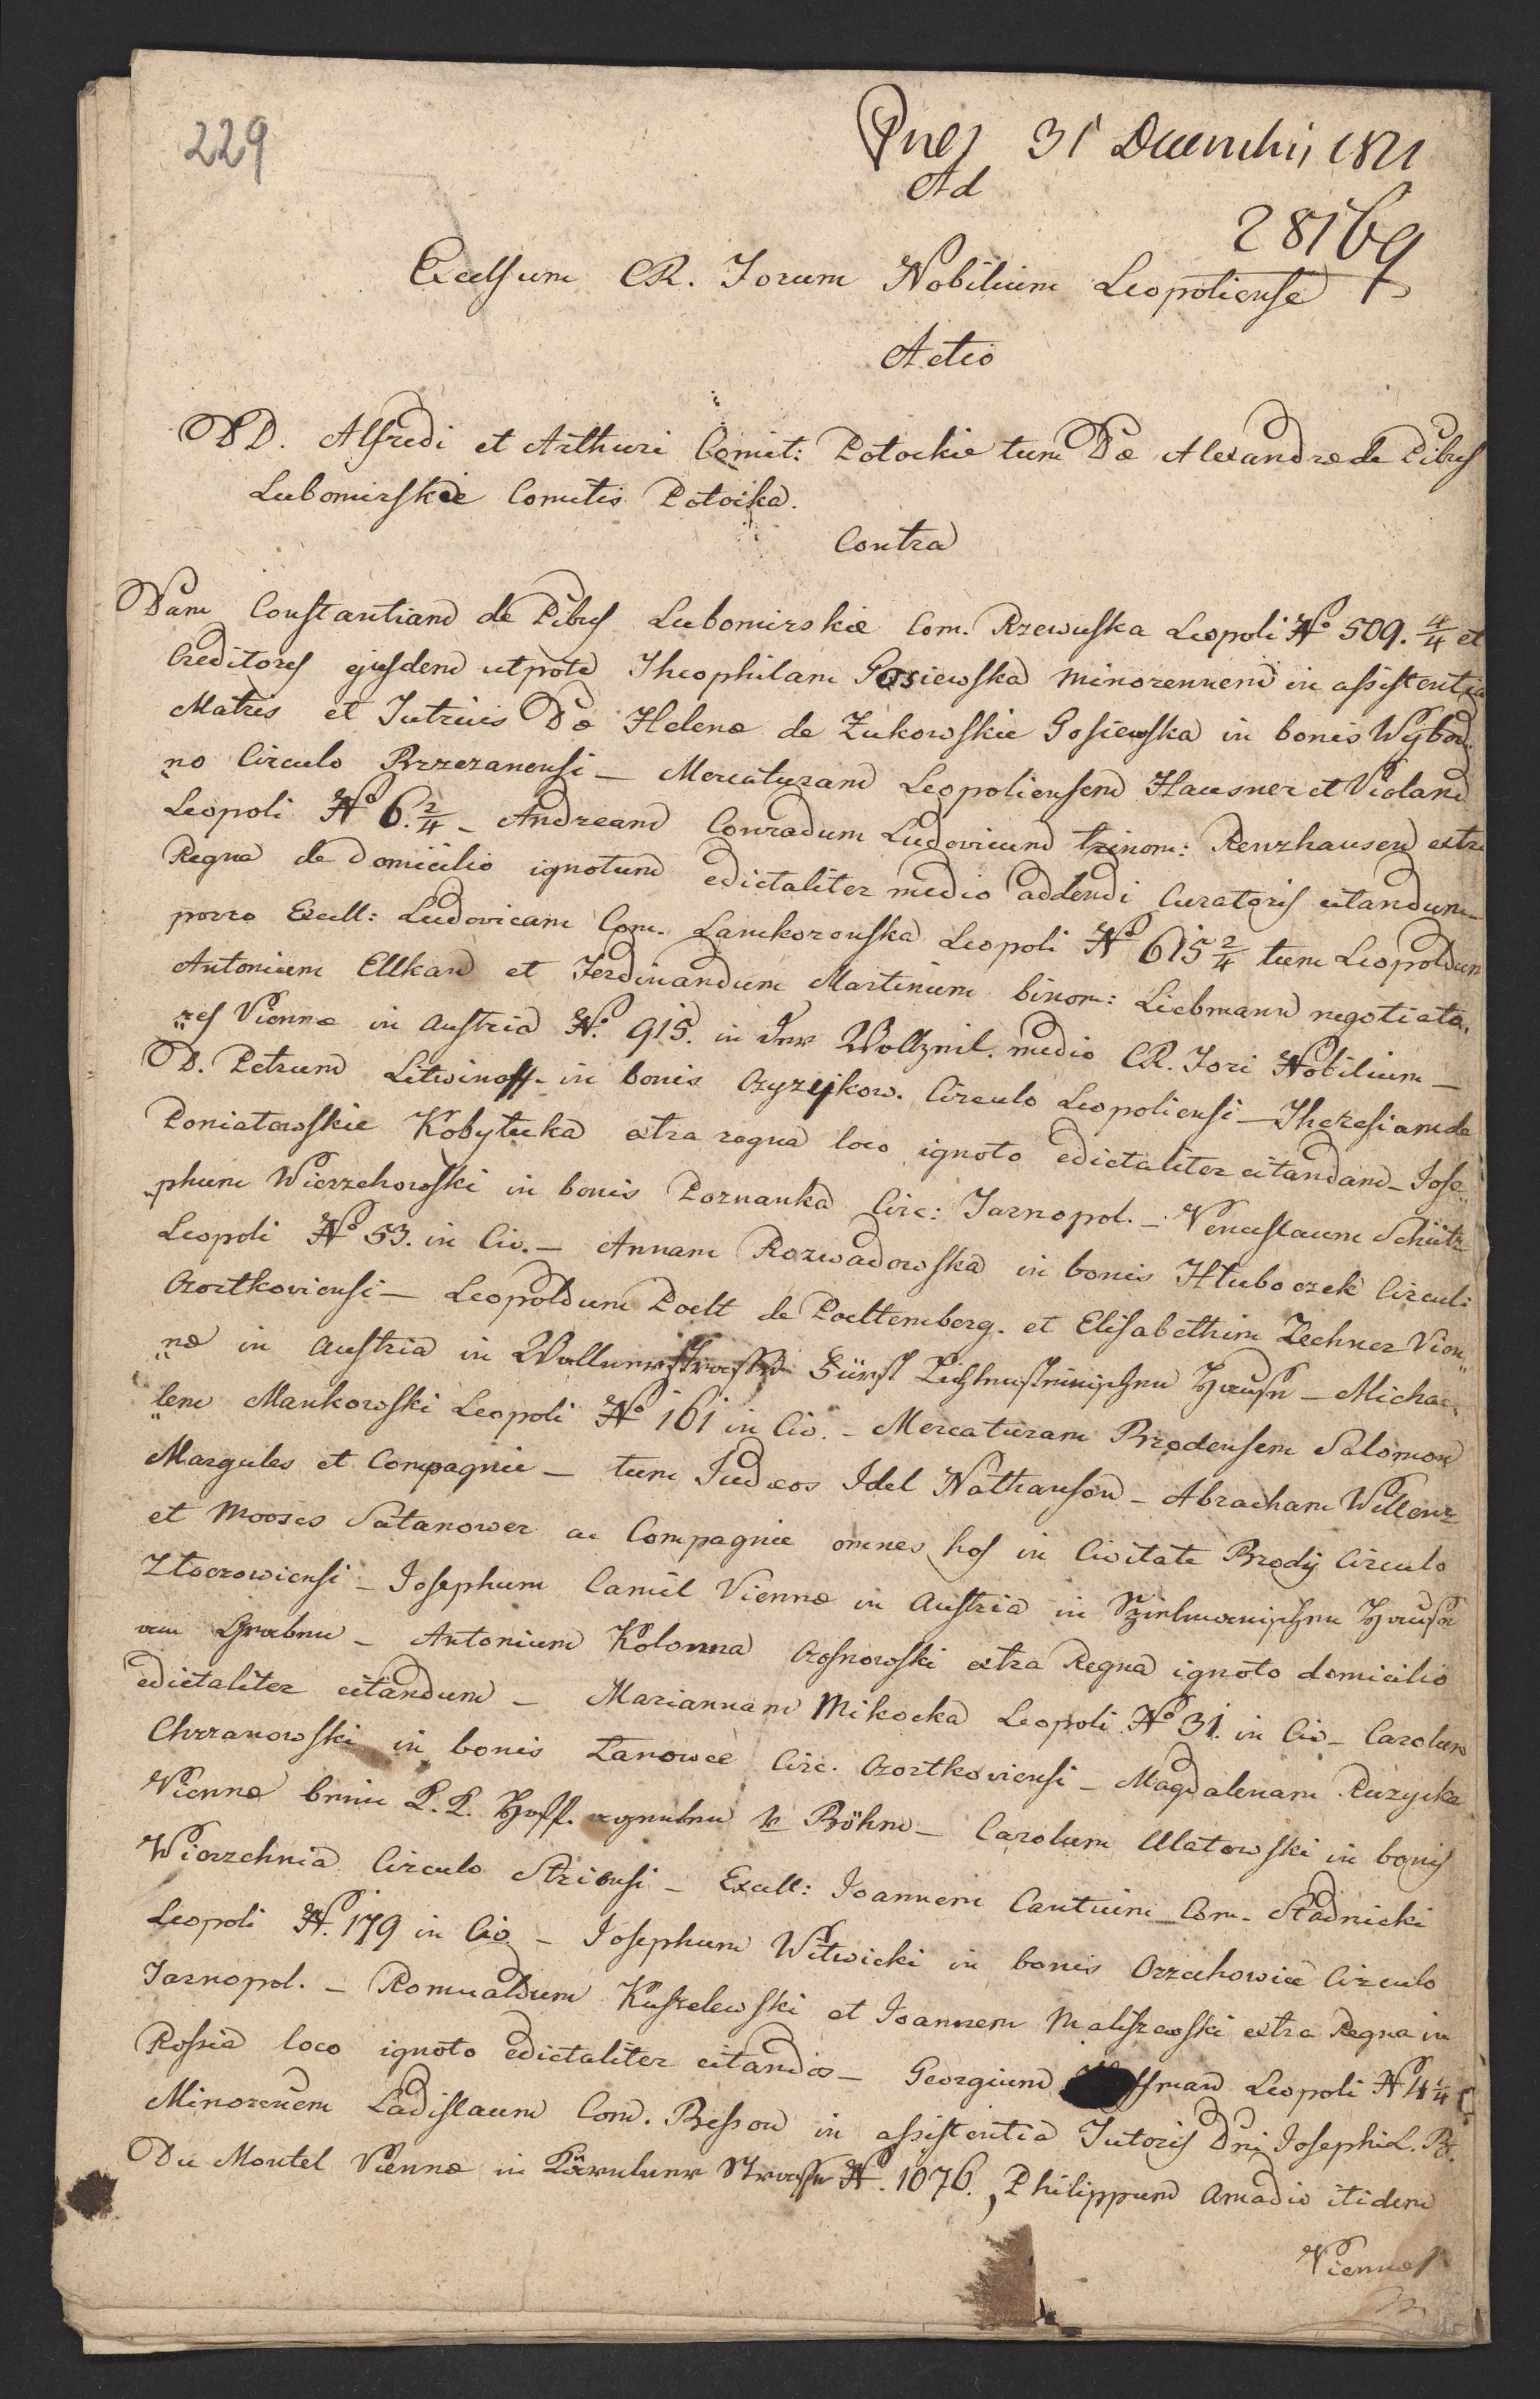 229
31 Decembris 1821
Ad
28169
Excelsum CR. Forum Nobilium Leopoliense
Actio
DD. Alfredi et Arthuri Comit: Potockie tum Dæ Alexandræ de Pibus
Lubomirskie Comitis Potocka.
Contra
Dam Constantiam de Pibus Lubomirskie Com. Rzewuska Leopoli No 509. 4/4 et
Creditores ejusdem utpote Theophilam Gosiewska minorennem in assistentia
Matris et Tutricis Dæ Helenæ de Zukowskie Gosiewska in bonis Wybód„
„no Circulo Brzezanensi — Mercaturam Leopoliensem Hausner et Violand
Leopoli No 6. 2/4 — Andream Conradum Ludovicum trinom: Renzhausen extra
Regna de domicilio ignotum edictaliter medio addendi Curatoris citandum —
porro Excell: Ludovicam Com. Lanckoronska Leopoli No 615 2/4 tum Leopoldum
Antonium Ellkan et Ferdinandum Martinum binom: Liebmann negotiato„
„res Viennæ in Austria No. 915. in der Wollzeil. medio CR. Fori Nobilium —
D. Petrum Litwinoff. in bonis Czyzykow. Circulo Leopoliensi — Theresiam de
Poniatowskie Kobytecka extra regna loco ignoto edictaliter citandam — Jose„
„phum Wierzchowski in bonis Poznanka Circ: Tarnopol. — Venceslaum Schütz
Leopoli No 53. in Civ. — Annam Rozwadowska in bonis Hluboczek Circul:
Czortkoviensi — Leopoldum Poelt de Poeltemberg. et Elisabethim Zechner Vien„
„næ in Austria in Fürst Lichtensteinischen Hause — Michae„
„lem Mankowski Leopoli No 161 in Civ. — Mercaturam Brodensem Salomon
Margules et Compagnie — tum Judæos Idel Nathanson — Abraham Willenz
et Mooses Satanower ac Compagnie omnes hos in Civitate Brody Circulo
Ztoczowiensi — Josephum Camil Viennæ in Austria in Spielmanischen Hause
am Graben — Antonium Kolonna Czosnowski extra Regna ignoto domicilio
edictaliter citandum — Mariannam Mikocka Leopoli No 31. in Civ — Carolum
Chrzanowski in bonis Lanowce Circ. Czortkoviensi — Magdalenam Ruzycka
Viennæ beim K.K. Hoff. agenten v Böhm — Carolum Ulatowski in bonis
Wierzchnia Circulo Striensi — Excell: Joannem Cantium Com. Stadnicki
Leopoli No. 179 in Civ. — Josephum Witwicki in bonis Orzechowice Circulo
Tarnopol. — Romualdum Kuszelewski et Joannem Maliszewski extra Regna in
Rossia loco ignoto edictaliter citandos — Georgium Leopoli No 4 1/4
Minorenem Ladislaum Com. Besson in assistentia Tutoris Dni Josephi L. B.
Du Montel Viennæ in Kärntner Strasse No. 1076. , Philippum Amadio itidem
Viennæ